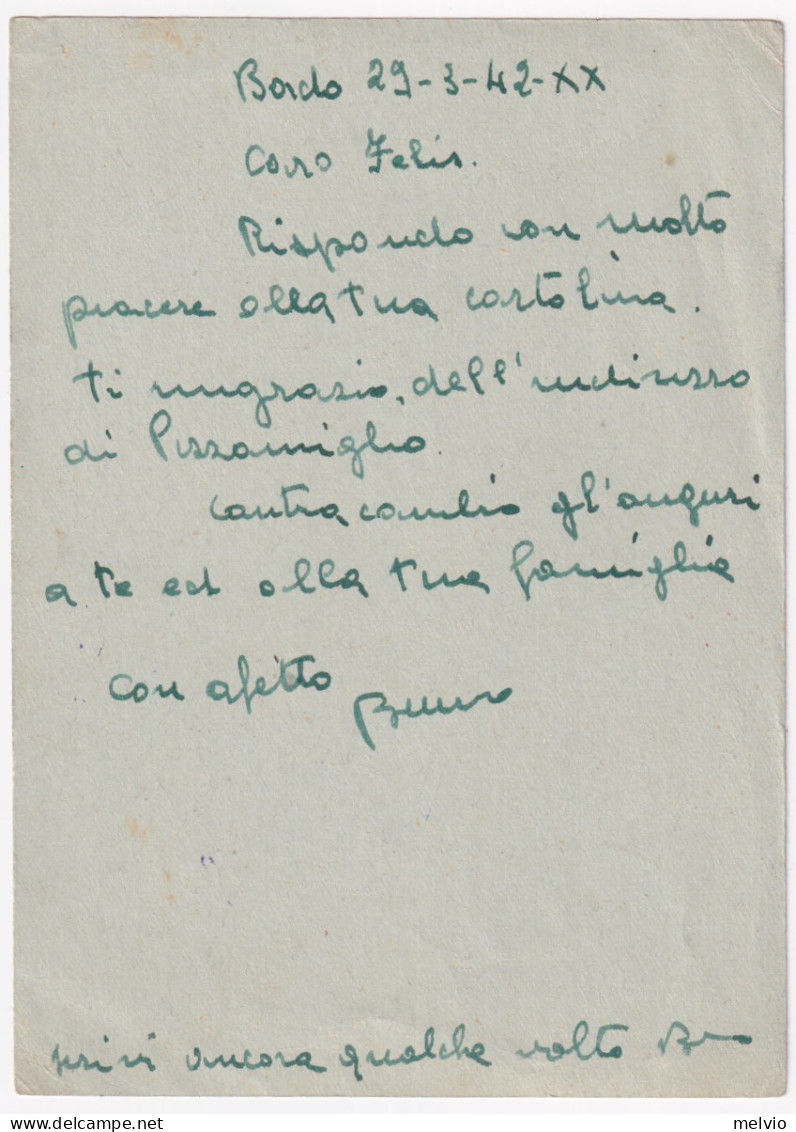 Bordo 29-3-42-XX
Caro Felis.
Rispondo con molto
piacere alla tua cartolina.
ti ringrazio, dell'indirizzo
di Pizzamiglio.
Contracambio gl'auguri
a te ed alla tua famiglia
con afetto Bruno
scrivi ancora qualche volta B
delcampe.net
melvio